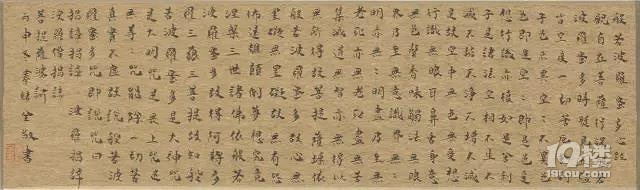 般若波羅蜜多心經
觀自在菩薩行深般若
波羅蜜多時照見五蘊
皆空度一切苦厄舍利
子色不異空空不異色
色即是空空即是色受
想行識亦復如是舍利
子是諸法空相不生不
滅不垢不淨不增不減
是故空中無色無受想
行識無眼耳鼻舌身意
無色聲香味觸法無眼
界乃至無意識界無無
明亦無無明盡乃至無
老死亦無老死盡無苦
集滅道無智亦無得以
無所得故菩提薩埵依
般若波羅蜜多故心無
罣礙無罣礙故無有恐
怖遠離顛倒夢想究竟
涅槃三世諸佛依般若
波羅蜜多故得阿耨多
羅三藐三菩提故知般
若波羅蜜多是大神咒
是大明咒是無上咒是
無等等咒能除一切苦
真實不虛故說般若波
羅蜜多咒即說咒曰
揭諦揭諦 波羅揭諦
波羅僧揭諦
菩提薩婆訶
丙申冬 敬書
19楼
19lou.com